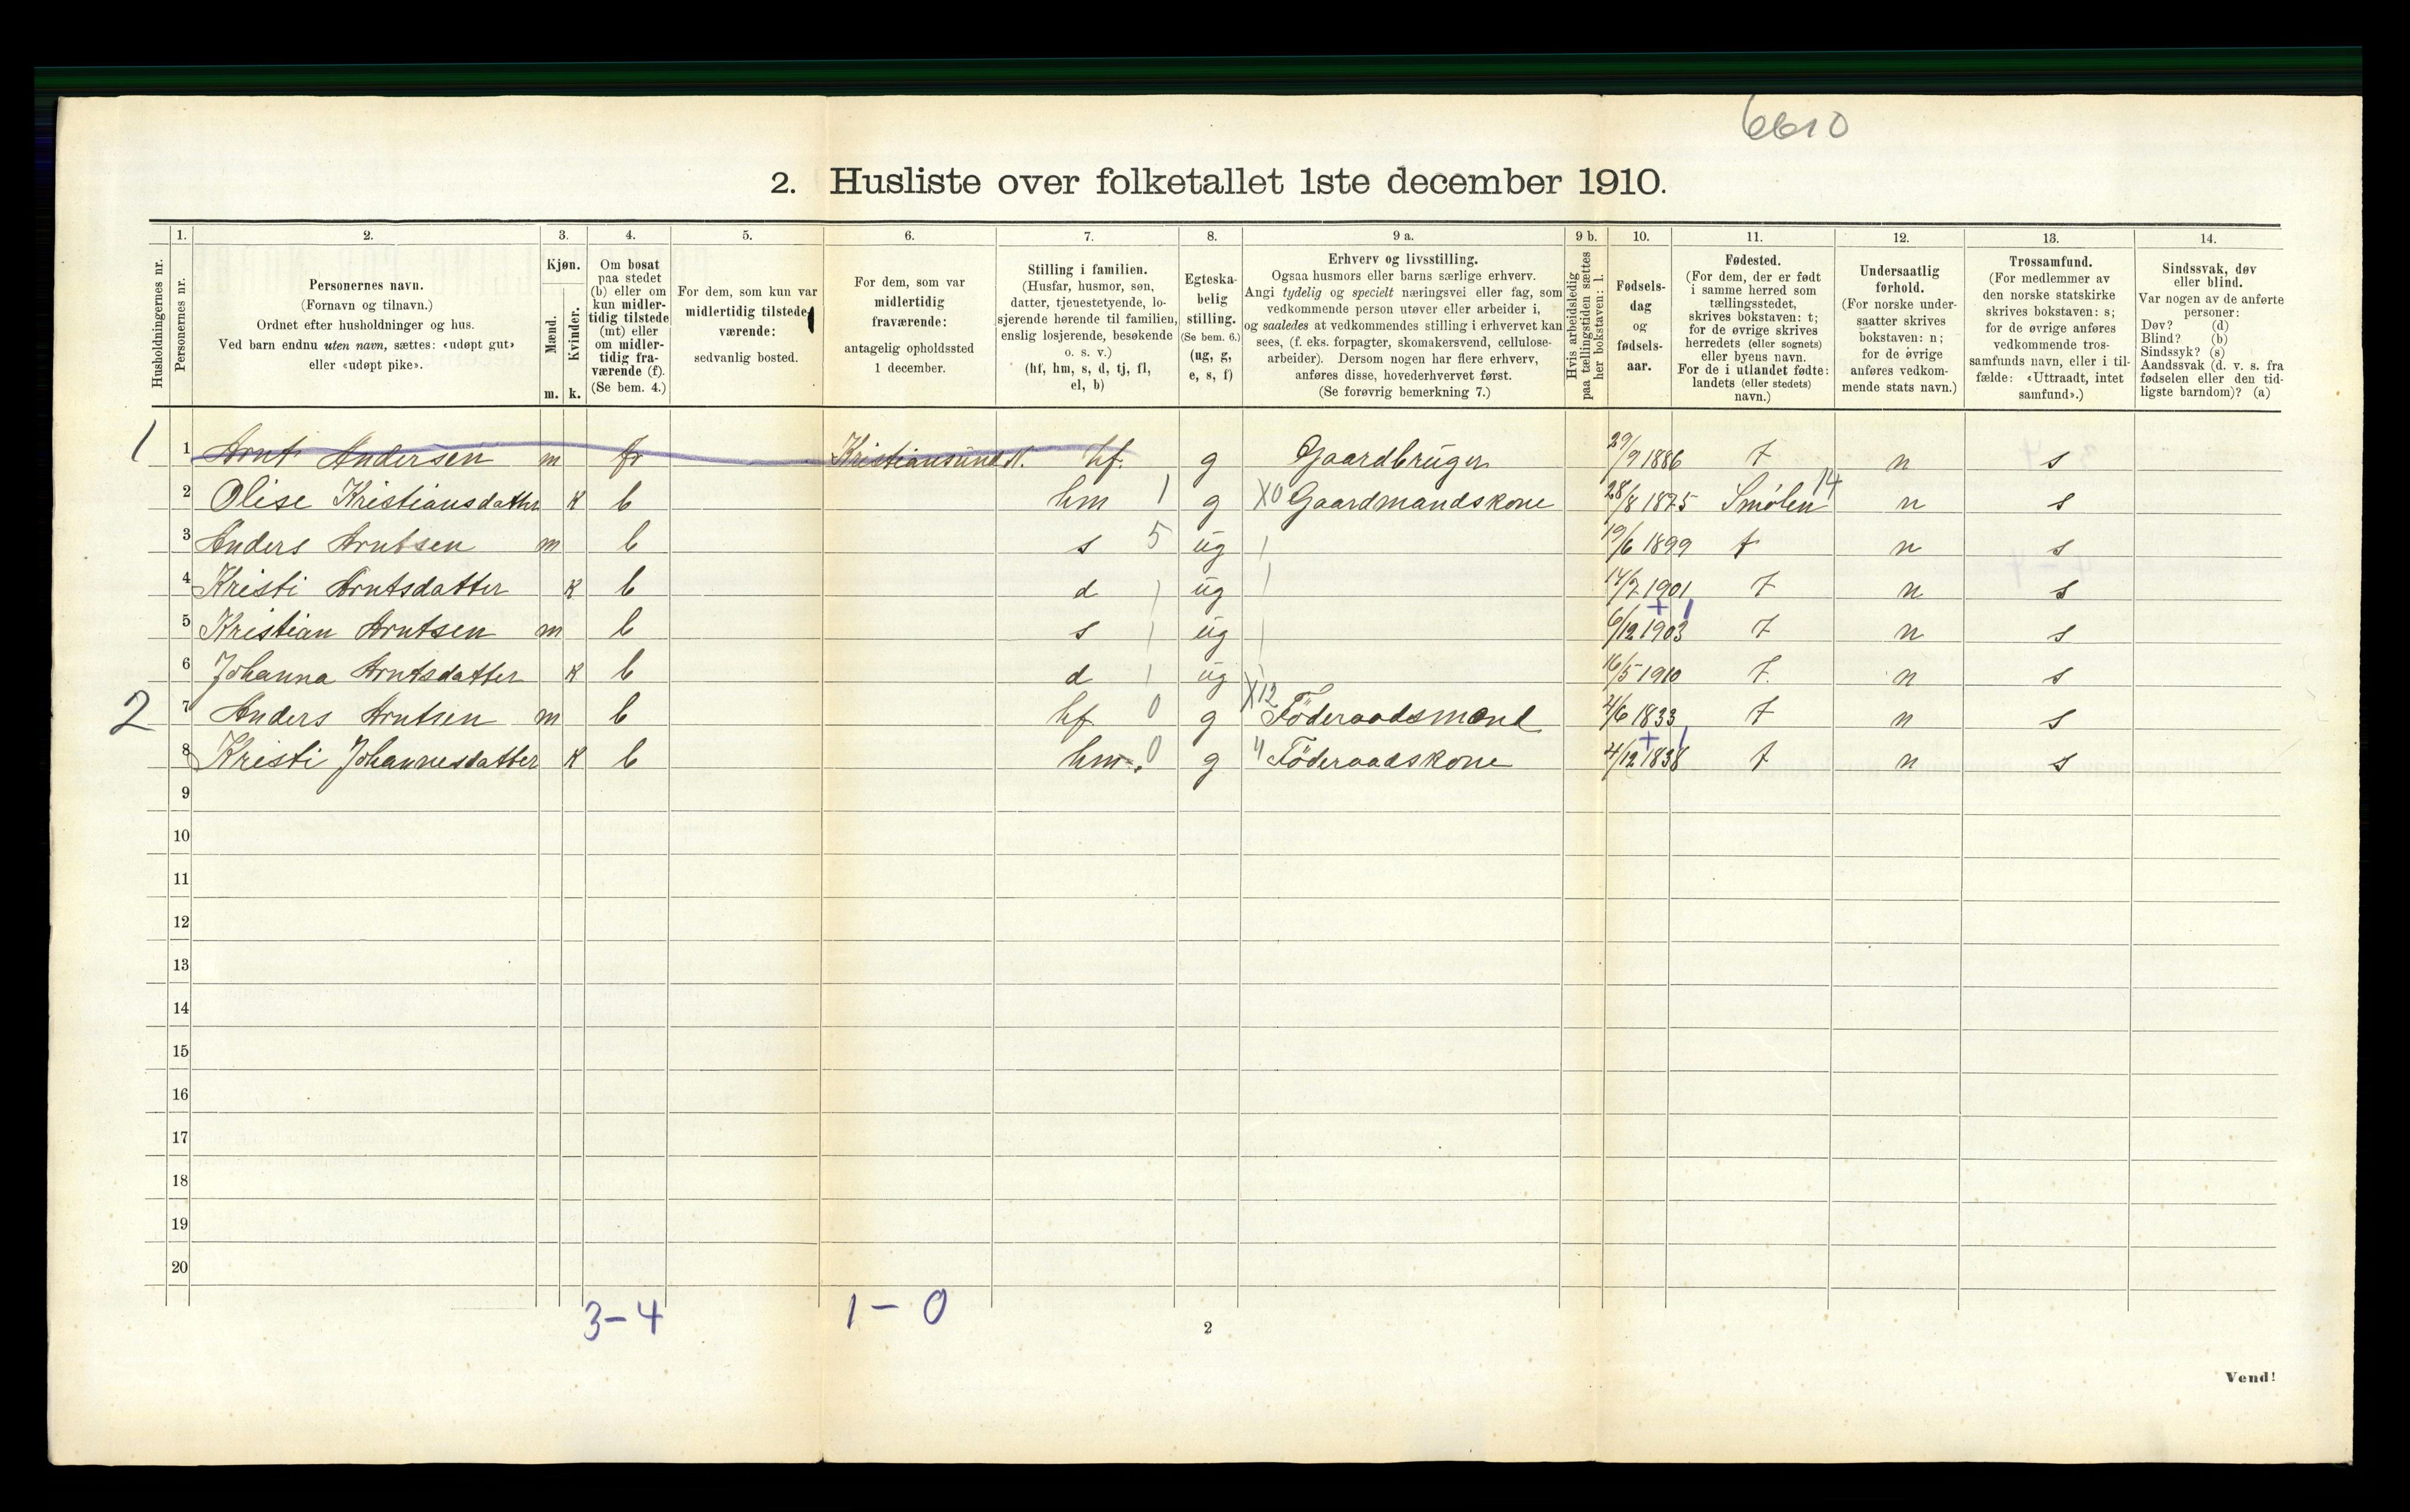 6610
2. Husliste over folketallet 1ste december 1910.
Husholdningernes nr.
1.
Personernes nr.
2.
Personernes navn.
(Fornavn og tilnavn.)
Ordnet efter husholdninger og hus.
Ved barn endnu uten navn, sættes: «udøpt gut»
eller «udøpt pike».
3.
Kjøn.
Mænd.
Kvinder.
m. k.
4.
Om bosat
paa stedet
(b) eller om
kun midler-
tidig tilstede
(mt) eller
om midler-
tidig fra-
værende (f).
(Se bem. 4.)
5.
For dem, som kun var
midlertidig tilstede-
værende:
sedvanlig bosted.
6.
For dem, som var
midlertidig
fraværende:
antagelig opholdssted
1 december.
7.
Stilling i familien.
(Husfar, husmor, søn,
datter, tjenestetyende, lo-
sjerende hørende til familien,
enslig losjerende, besøkende
o. s. v.)
(hf, hm, s, d, tj, fl,
el, b)
8.
Egteska-
belig
stilling.
(Se bem. 6.)
(ug, g,
e, s, f)
9 a.
Erhverv og livsstilling.
Ogsaa husmors eller barns særlige erhverv.
Angi tydelig og specielt næringsvei eller fag, som
vedkommende person utøver eller arbeider i,
og saaledes at vedkommendes stilling i erhvervet kan
sees, (f. eks. forpagter, skomakersvend, cellulose-
arbeider). Dersom nogen har flere erhverv,
anføres disse, hovederhvervet først.
(Se forøvrig bemerkning 7.)
9 b.
Hvis arbeidsledig
paa tællingstiden sættes
her bokstaven: l.
10.
Fødsels-
dag
og
fødsels-
aar.
11.
Fødested.
(For dem, der er født
i samme herred som
tællingsstedet,
skrives bokstaven: t;
for de øvrige skrives
herredets (eller sognets)
eller byens navn.
For de i utlandet fødte:
landets (eller stedets)
navn.)
12.
Undersaatlig
forhold.
(For norske under-
saatter skrives
bokstaven: n;
for de øvrige
anføres vedkom-
mende stats navn.)
13.
Trossamfund.
(For medlemmer av
den norske statskirke
skrives bokstaven: s;
for de øvrige anføres
vedkommende tros-
samfunds navn, eller i til-
fælde: «Uttraadt, intet
samfund».)
14.
Sindssvak, døv
eller blind.
Var nogen av de anførte
personer:
Døv? (d)
Blind? (b)
Sindssyk? (s)
Aandssvak (d. v. s. fra
fødselen eller den tid-
ligste barndom)? (a)
1 1 Arnt Andersen m fr Kristiansund N. hf. g Gaardbruger 29/9 1886 t n s
2 Olise Kristiansdatter k b hm 1 g X0 Gaardmandskone 28/8 1875 Smølen 14 n s
3 Anders Arntsen m b s 5 ug 19/6 1899 t n s
4 Kristi Arntsdatter k b d ug 14/2 1901 t n s
5 Kristian Arntsen m b s ug 6/12 1903 t n s
6 Johanna Arntsdatter k b d ug 16/5 1910 t. n s
2 7 Anders Arntsen m b hf 0 g X12 Föderaadsmand 2/6 1833 t n s
8 Kristi Johannesdatter k b hm. 0 g " Föderaadskone 4/12 1838 t n s
9
10
11
12
13
14
15
16
17
18
19
20
3-4 1-0
2
Vend!